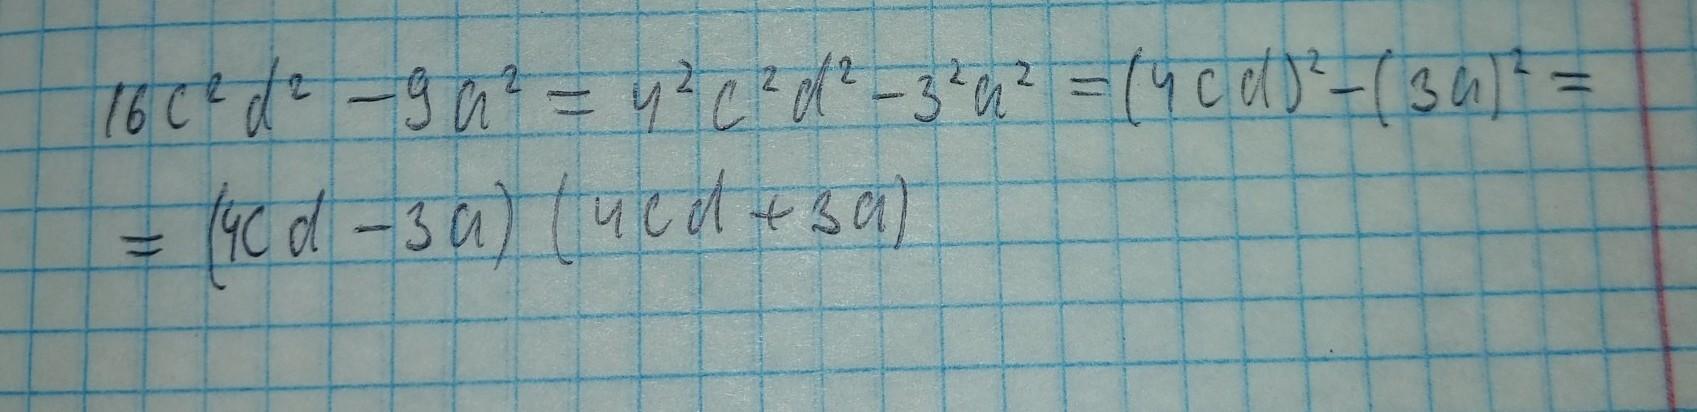 16c²d² - 9a² = 4²c²d² - 3²a² = (4cd)² - (3a)² =
= (4cd - 3a) (4cd + 3a)